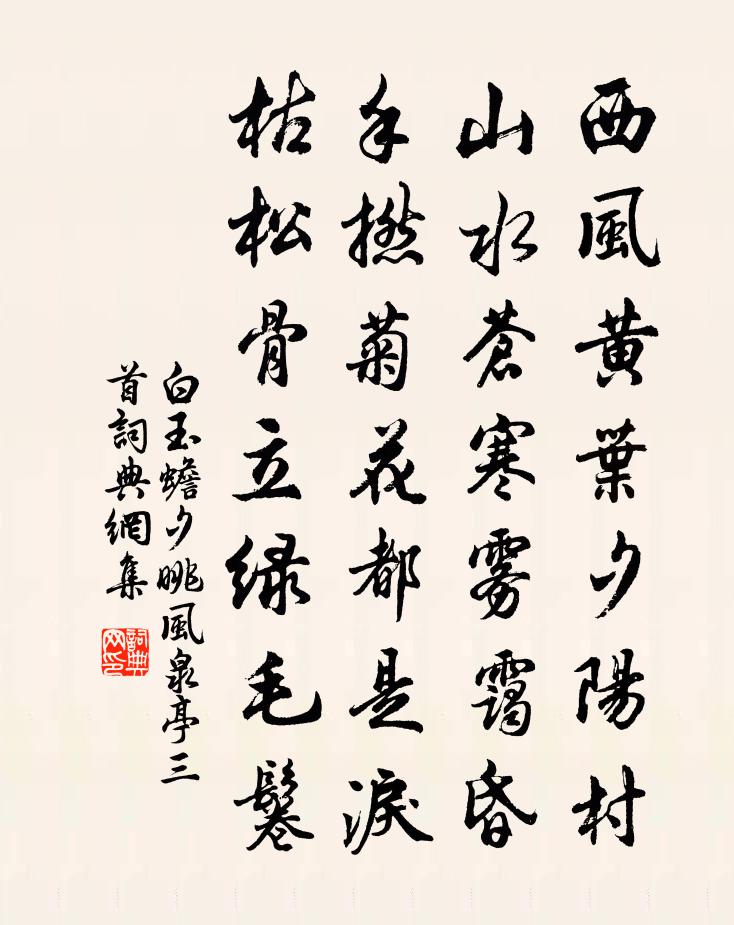 西風黄葉夕陽村
山水蒼寒雾靄昏
手撚菊花都是淚
枯松骨立绿毛鬈
白玉蟾夕眺風泉亭三
首詞典網集
詞典
网印